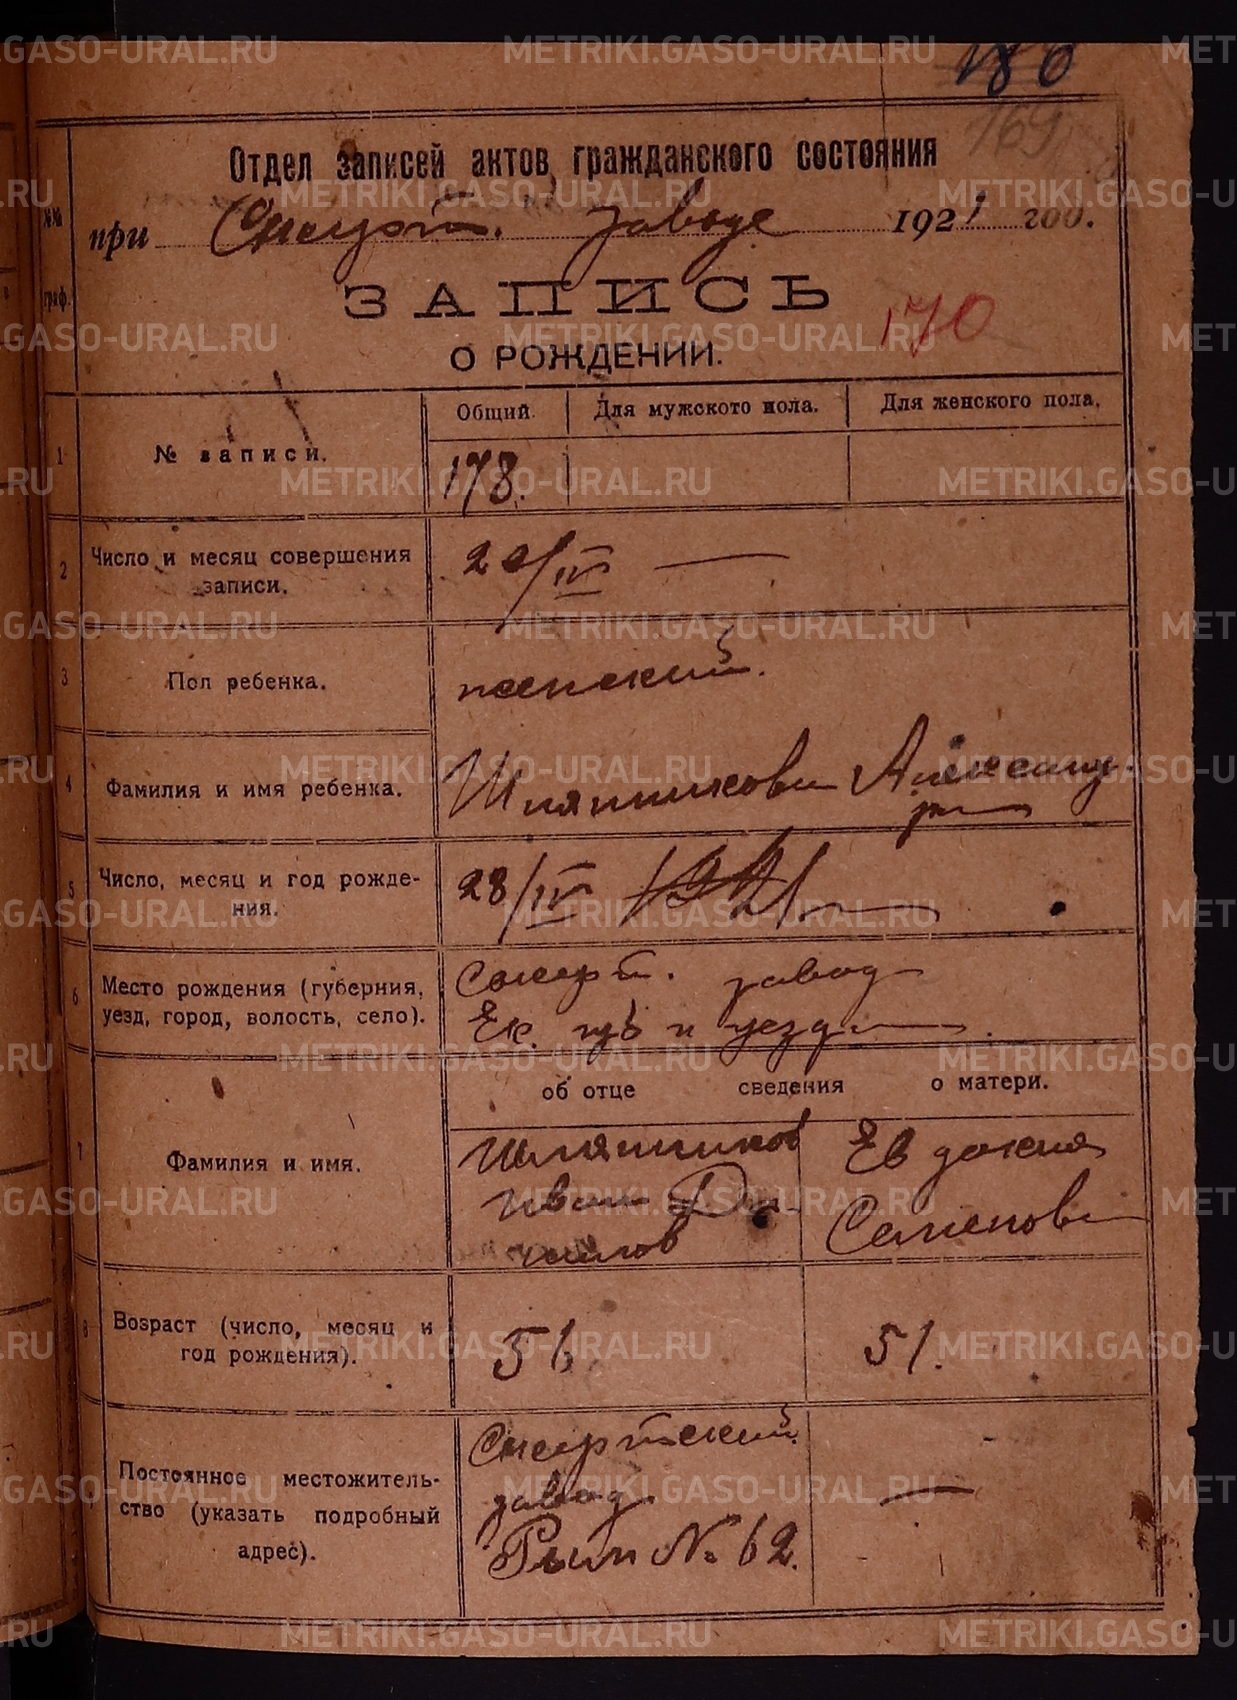 186
169
Отдел записей актов гражданского состояния
при Сысерт. заводе 1921 год.
№№ граф.
ЗАПИСЬ
О РОЖДЕНИИ.
170
Общий. Для мужского пола. Для женского пола.
1 № записи. 178.
2 Число и месяц совершения
записи.
/IV —
3 Пол ребенка. женский.
4 Фамилия и имя ребенка. Шляпникова Александ-
ра
5 Число, месяц и год рожде-
ния.
28/IV 1921
6 Место рождения (губерния,
уезд, город, волость, село).
Сысерт. завод
Ек. губ и уезда
об отце сведения о матери.
7 Фамилия и имя.
Шляпников
Иван
Евдокия
Семенова
8 Возраст (число, месяц и
год рождения).
51.
Постоянное местожитель-
ство (указать подробный
адрес).
Сысертский
завод
№ 62.
—
METRIKI.GASO-URAL.RU